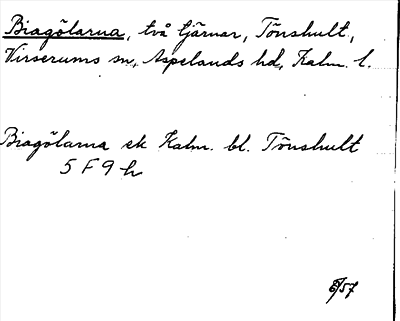 Biagölarna, två tjärnar, Tönshult,
Virserums sn, Aspelands hd, Kalm. l.
Biagölarna ek Kalm. bl. Tönshult
5 F 9 h
/57